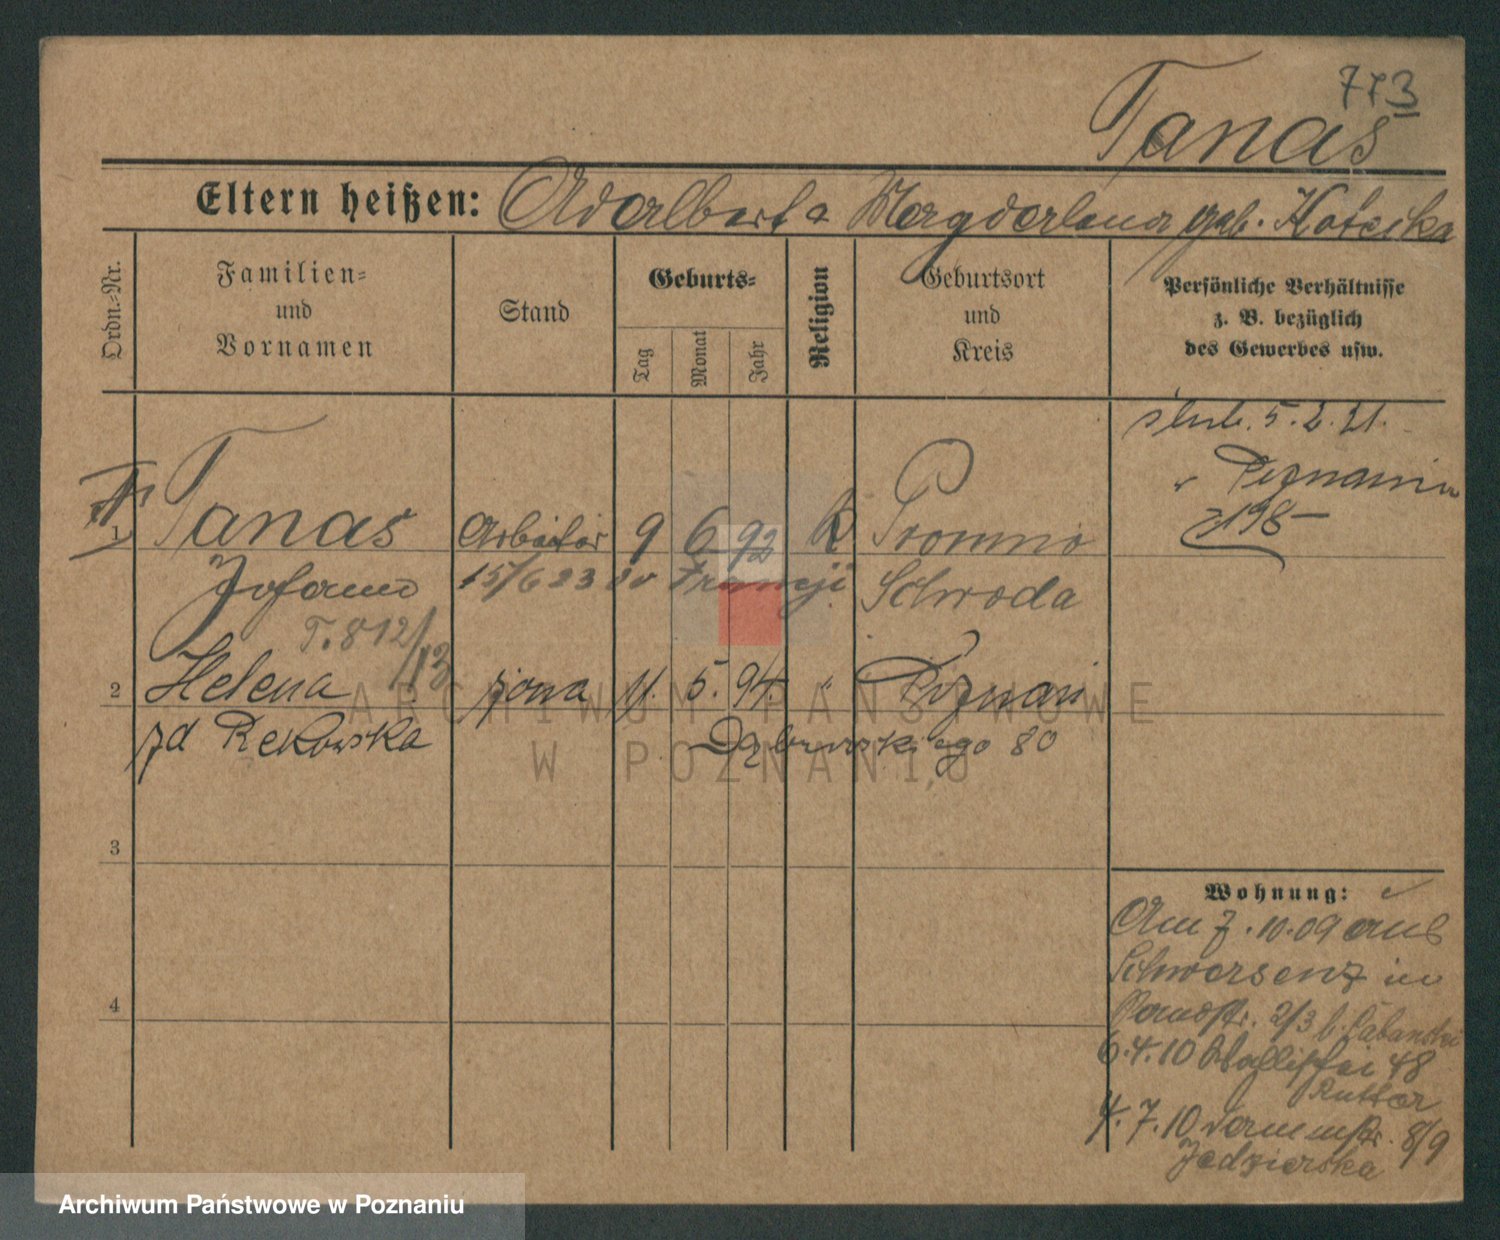 773
Tanas
Eltern heißen: Adalbert & Magdalena geb. Kotecka
Ordn.-Nr.
Familien-
und
Vornamen
Stand
Geburts-
Tag
Monat
Jahr
Religion
Geburtsort
und
Kreis
Persönliche Verhältnisse
z. B. bezüglich
des Gewerbes usw.
ślub. 5. 2. 21.
w Poznaniu
198
1 Tanas Arbeiter 9 6 92 k Promno
Johann 15/6 23 do Francji Schroda
T. 812/13
2 Helena żona 11. 5. 94. " Poznań
zd Rekowska Dąbrowskiego 80
3
4
Wohnung:
Am 7. 10. 09 aus
Schwersenz in
2/3 b.
6. 4. 10 Wallischei 48
4. 7. 10 8/9
Jedzierska
ARCHIWUM PAŃSTWOWE
W POZNANIU
Archiwum Państwowe w Poznaniu